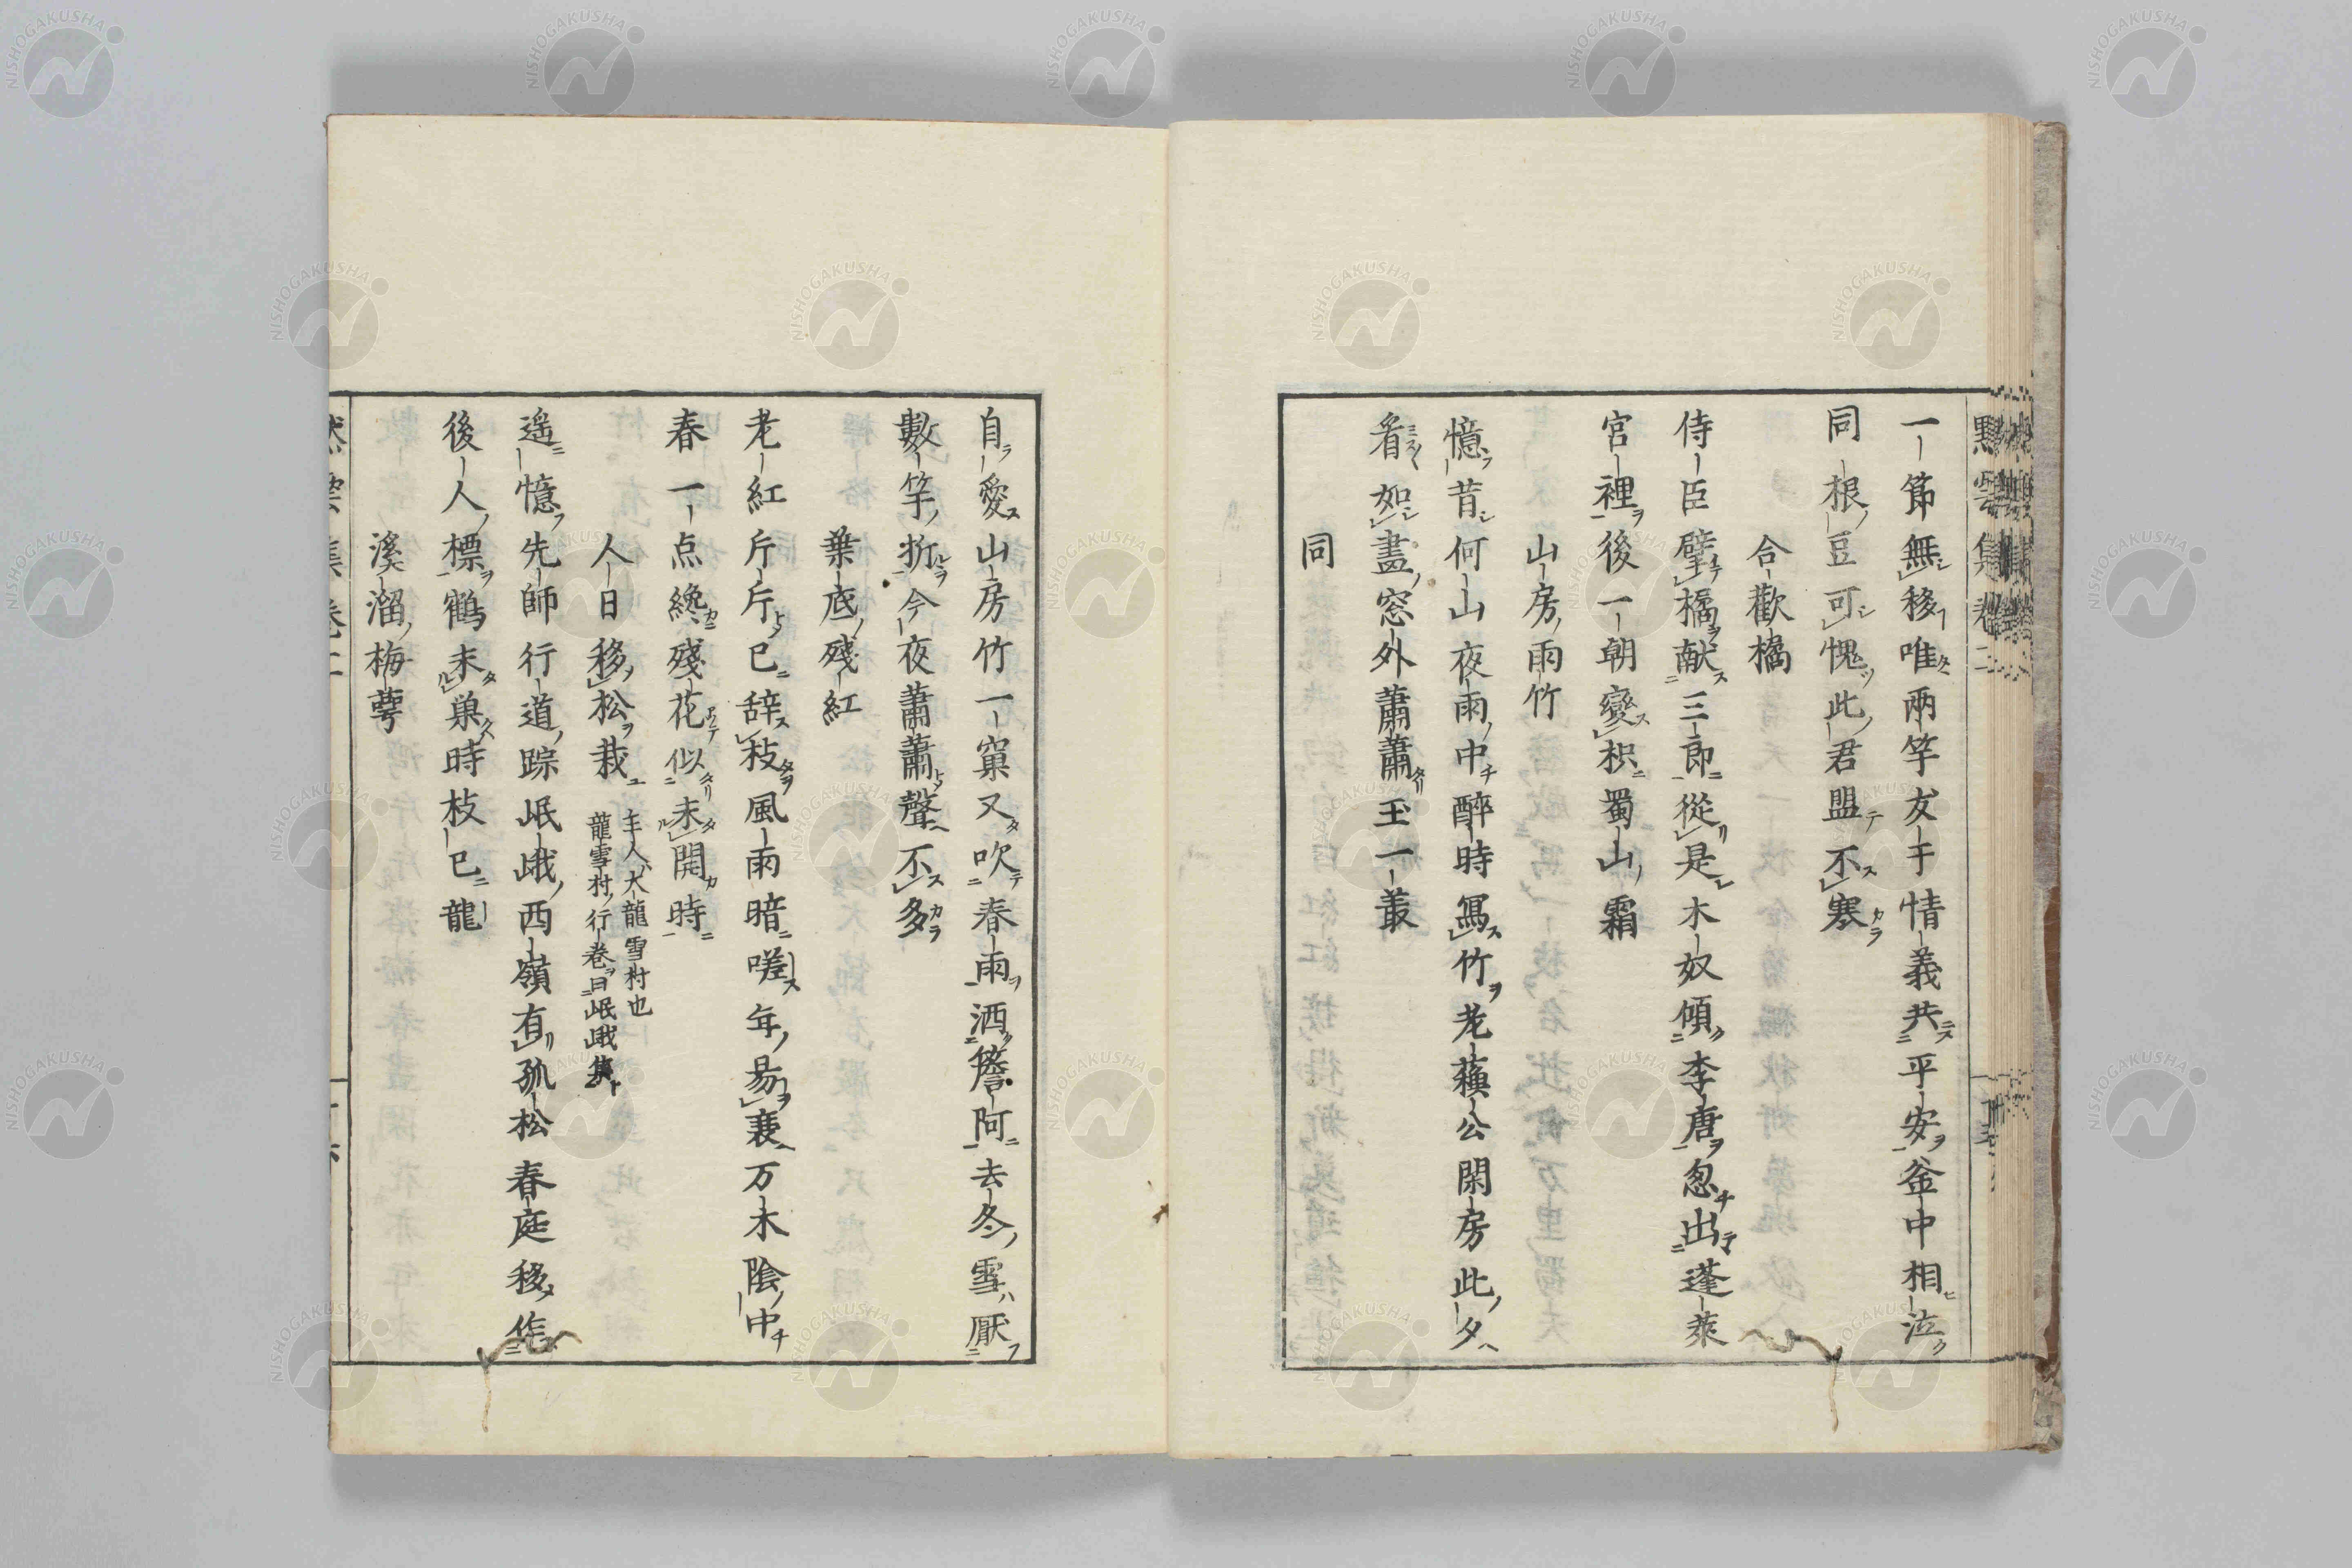 一節無移唯兩竿友于情義共平安釜中相泣
同根豆可愧此君盟不寒
合歡橘
侍臣擘橘献三郎從是木奴傾李唐忽出蓬萊
宮裡後一朝變枳蜀山霜
山房雨竹
憶昔何山夜雨中醉時寫竹老蘓公閑房此夕
看如畫窓外蕭蕭玉一叢
同
自愛山房竹一窠又吹春雨洒簷阿去冬雪厭
數竿折今夜蕭蕭聲不多
葉底殘紅
老紅片片已辞枝風雨暗嗟年易衰万木陰中
春一点纔殘花似未開時
人日移松栽
主人大龍雪村也
龍雪村行卷曰岷峨集
遥憶先師行道踪岷峨西嶺有孤松春庭移作
後人標鶴未巢時枝已龍
溪溜梅萼